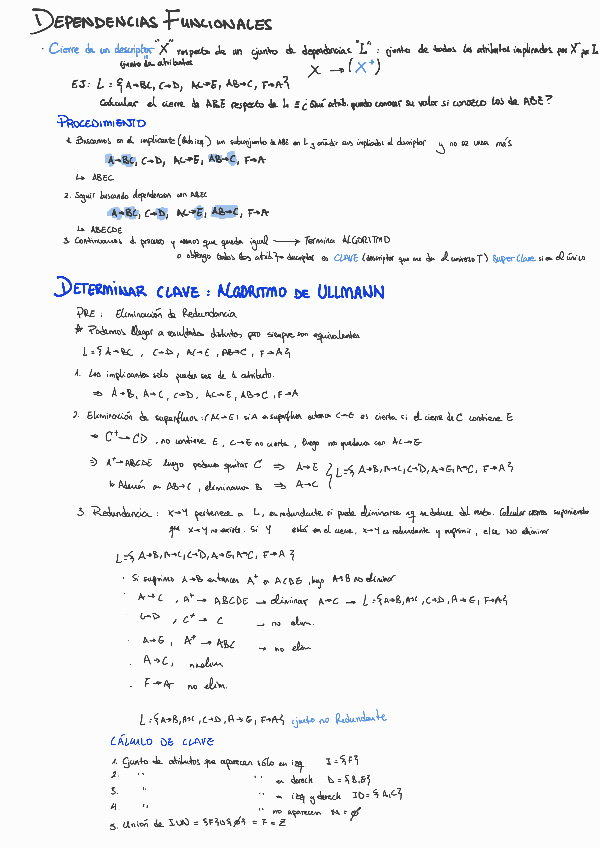 DEPENDENCIAS FUNCIONALES
· Cierre de un descriptor "X" respecto de un cjunto de dependencias "L" : cjunto de todos los atributos implicados por X por L
cjunto de atributos
X → (X⁺)
EJ: L = { A→BC, C→D, AC→E, AB→C, F→A }
Calcular el cierre de ABE respecto de L = ¿Qué atrib. puedo conocer su valor si conozco los de ABE?
PROCEDIMIENTO
1. Buscamos en el implicante un subconjunto de ABE en L y añadir sus implicados al descriptor y no se usa más
A→BC, C→D, AC→E, AB→C, F→A
↳ ABEC
2. Seguir buscando dependencias con ABEC
A→BC, C→D, AC→E, AB→C, F→A
↳ ABECDE
3. Continuamos el proceso y vemos que queda igual → TERMINA ALGORITMO
o obtengo todos los atrib. → descriptor es CLAVE (descriptor que me da el universo T) SuperClave si es el único
DETERMINAR CLAVE : ALGORITMO DE ULLMANN
PRE : Eliminación de Redundancia
☆ Podemos llegar a resultados distintos pero siempre son equivalentes
L = { A→BC , C→D, AC→E , AB→C , F→A }
1. Los implicantes sólo pueden ser de 1 atributo.
⇒ A→B, A→C, C→D, AC→E, AB→C, F→A
2. Eliminación de superfluos : (AC→E) si A es superfluo entonces C→E es cierta si el cierre de C contiene E
⇒ C⁺→CD , no contiene E , C→E no cierta , luego no quedamos con AC→E
⇒ A⁺→ABCDE luego podemos quitar C ⇒ A→E } L={ A→B, A→C, C→D, A→E, A→C, F→A }
↳ Además en AB→C , eliminamos B ⇒ A→C
3. Redundancia : X→Y pertenece a L, es redundante si puede eliminarse xq se deduce del resto. Calcular cierres suponiendo
que X→Y no existe. Si Y está en el cierre, X→Y es redundante y suprimir, else NO eliminar
L={ A→B, A→C, C→D, A→E, A→C, F→A }
· Si suprimo A→B entonces A⁺ es ACDE , luego A→B no eliminar
· A→C , A⁺→ ABCDE → eliminar A→C → L={A→B, A→C, C→D, A→E, F→A}
· C→D , C⁺→ C → no elim.
· A→E , A⁺→ ABC → no elim
· A→C, no elim
· F→A no elim.
L={A→B, A→C, C→D, A→E, F→A} cjunto no Redundante
CÁLCULO DE CLAVE
1. Cjunto de atributos que aparecen sólo en izq I={F}
2. " " en derech D={B,E}
3. " " en izq y derech ID={A,C}
4. " " no aparecen N=∅
5. Unión de I∪N = {F}∪{∅} = F = Z